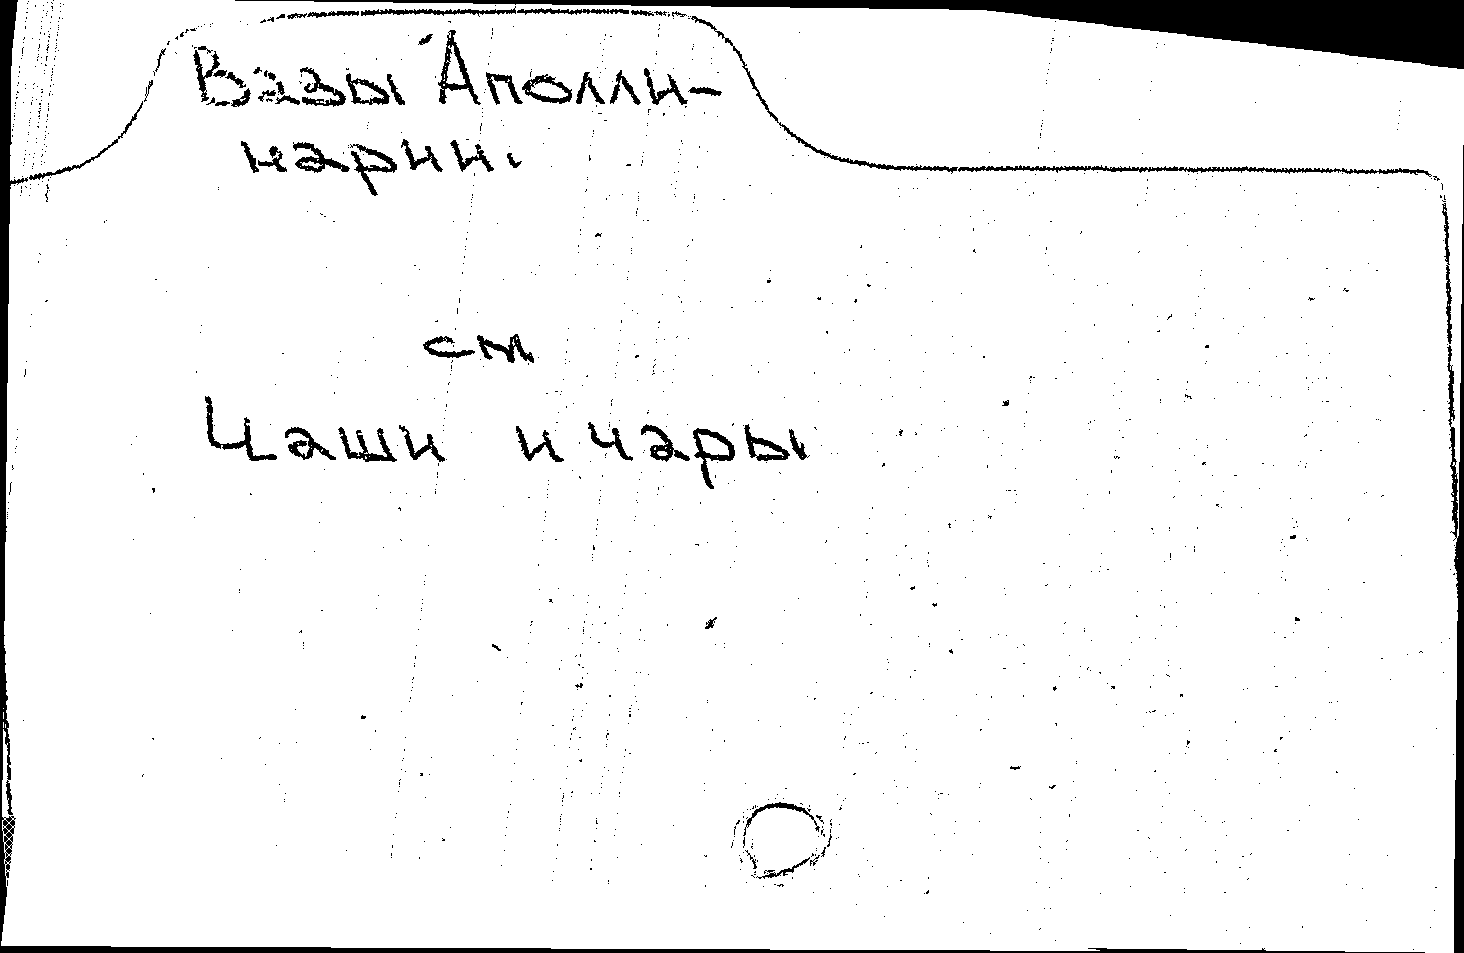 Вазы Аполли-
нарии.
см
Чаши и чары